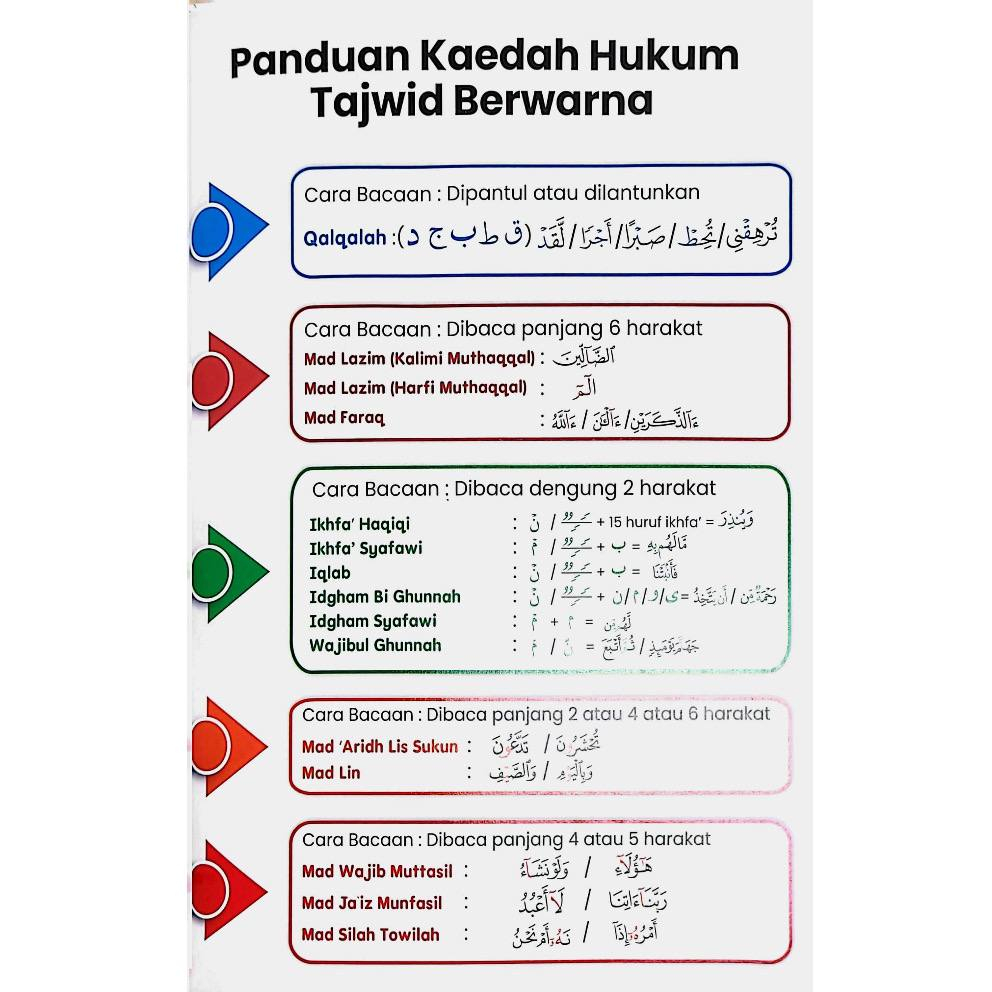 Panduan Kaedah Hukum
Tajwid Berwarna
Cara Bacaan : Dipantul atau dilantunkan
Qalqalah :(ق ط ب ج د) لَّقَدْ / أَجْرًا / صَبْرًا / تُحِطْ / تُرْهِقْنِى
Cara Bacaan : Dibaca panjang 6 harakat
Mad Lazim (Kalimi Muthaqqal) : ٱلضَّآلِّينَ
Mad Lazim (Harfi Muthaqqal) : الٓمٓ
Mad Faraq : ءَآللَّهُ / ءَآلْـَٰٔنَ / ءَآلذَّكَرَيْنِ
Cara Bacaan : Dibaca dengung 2 harakat
Ikhfa’ Haqiqi : نْ / ـًـٍـٌ + 15 huruf ikhfa’ = وَيُنذِرَ
Ikhfa’ Syafawi : مْ / ـًـٍـٌ + ب = مَّا لَهُم بِهِ
Iqlab : نْ / ـًـٍـٌ + ب = فَأَنۢبَتْنَا
Idgham Bi Ghunnah : نْ / ـًـٍـٌ + ن/م/و/ى = أَن يَتَّخِذَ / رَحْمَةً مِّن
Idgham Syafawi : مْ + م = لَهُم مِّن
Wajibul Ghunnah : مّ / نّ = ثُمَّ أَتْبَعَ / جَهَنَّمَ يَوْمَئِذٍ
Cara Bacaan : Dibaca panjang 2 atau 4 atau 6 harakat
Mad ‘Aridh Lis Sukun : تَدَّعُونَ / تُحْشَرُونَ
Mad Lin : وَٱلصَّيْفِ / وَبِٱلْيَوْمِ
Cara Bacaan : Dibaca panjang 4 atau 5 harakat
Mad Wajib Muttasil : وَلَوْ نَشَآءُ / هَٰٓؤُلَآءِ
Mad Ja'iz Munfasil : لَآ أَعْبُدُ / رَبَّنَآ ءَاتِنَا
Mad Silah Towilah : أَمْ نَحْنُ / أَمْرُهُۥٓ إِذَآ